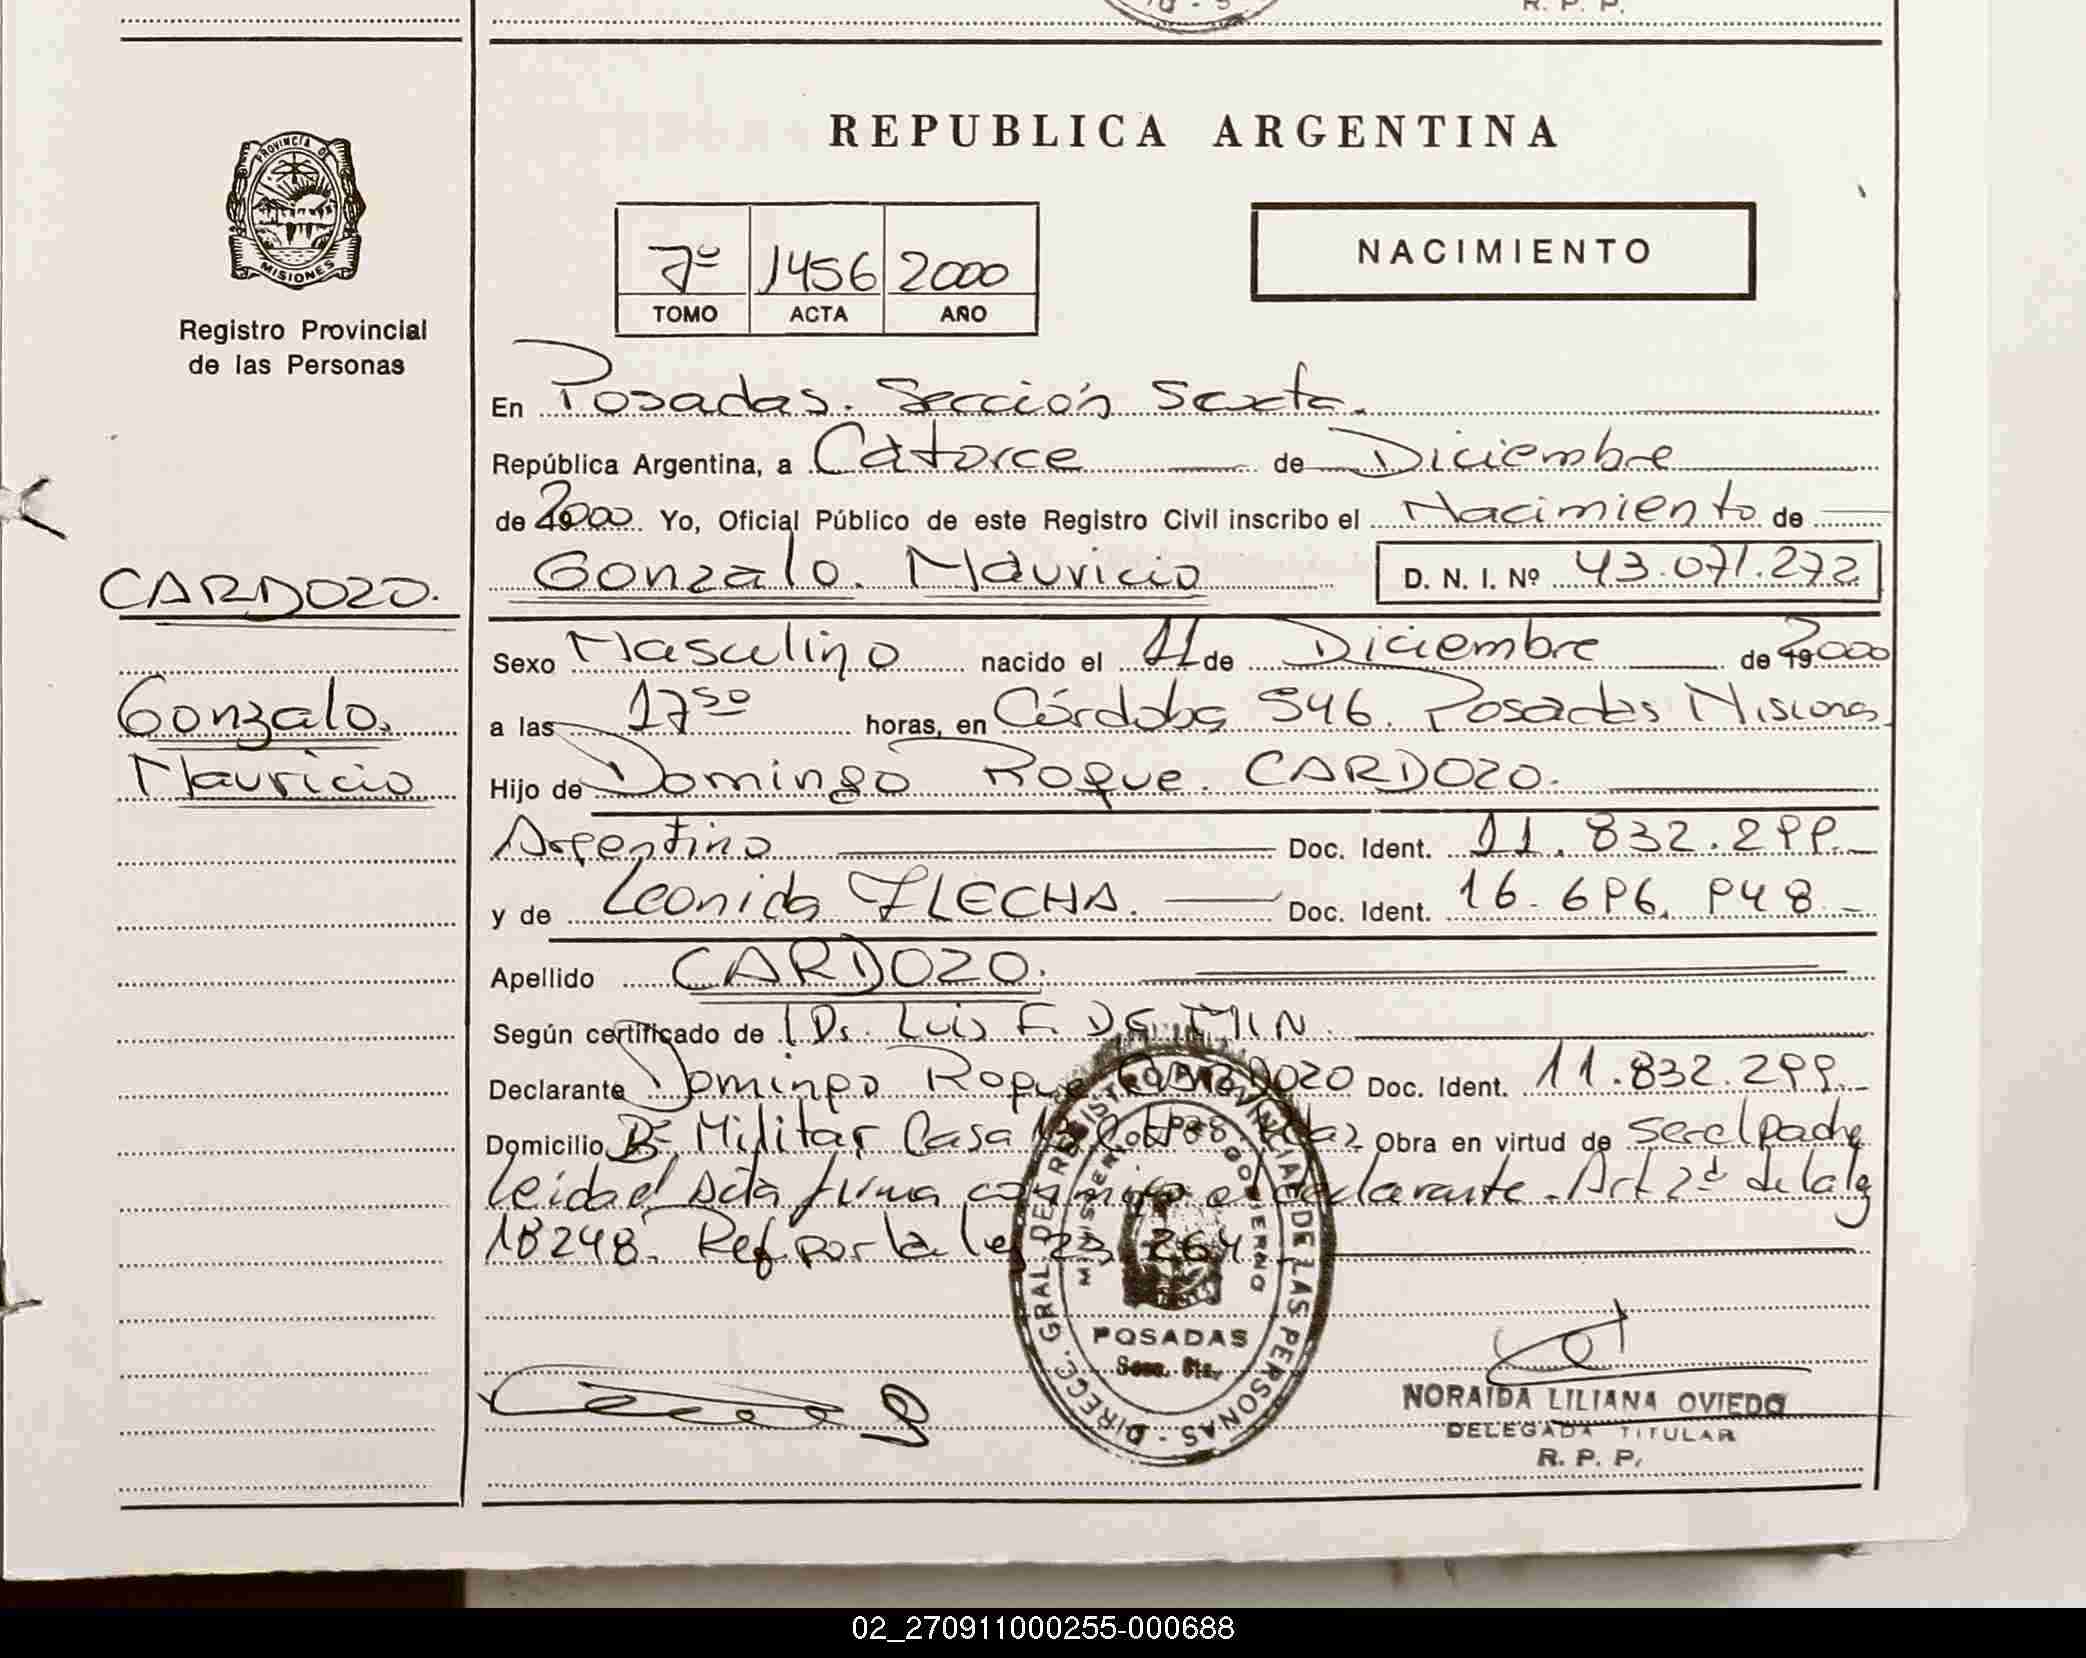 R. P. P.
PROVINCIA DE
MISIONES
Registro Provincial
de las Personas
REPUBLICA ARGENTINA
7º 1456 2000
TOMO ACTA AÑO
NACIMIENTO
En Posadas. Sección Sexta.
República Argentina, a Catorce de Diciembre
de 2000 Yo, Oficial Público de este Registro Civil inscribo el Nacimiento de
Gonzalo. Mauricio D. N. I. Nº 43.071.272
CARDOZO.
Gonzalo.
Mauricio
Sexo Masculino nacido el 11 de Diciembre de 2000
a las 17 50 horas, en Córdoba 546. Posadas Misiones
Hijo de Domingo Roque. CARDOZO.
Argentino Doc. Ident. 11.832.299.
y de Leonida FLECHA. Doc. Ident. 16.696.948
Apellido CARDOZO.
Según certificado de Dr. Luis F. DE MIN.
Declarante Domingo Roque CARDOZO Doc. Ident. 11.832.299.
Domicilio Bº Militar Casa Obra en virtud de ser el padre
leida el acta firma conmigo el declarante. Art 2º de la ley
18248. Ref por la ley 23.264
DIRECC. GRAL. DEL REGISTRO PROVINCIAL DE LAS PERSONAS
MINISTERIO DE GOBIERNO
POSADAS
Secc. 6ta.
NORAIDA LILIANA OVIEDO
DELEGADA TITULAR
R. P. P.
02_270911000255-000688